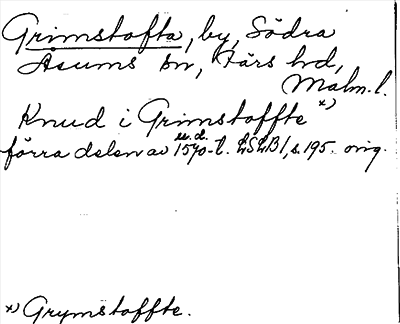 Grimstofta, by, Södra
Åsums sn, Färs hd,
Malm. l.
Knud i Grimstoffte x)
u.d.
förra delen av 1570-t. LSLB I, s. 195. orig.
x) Grymstoffte.